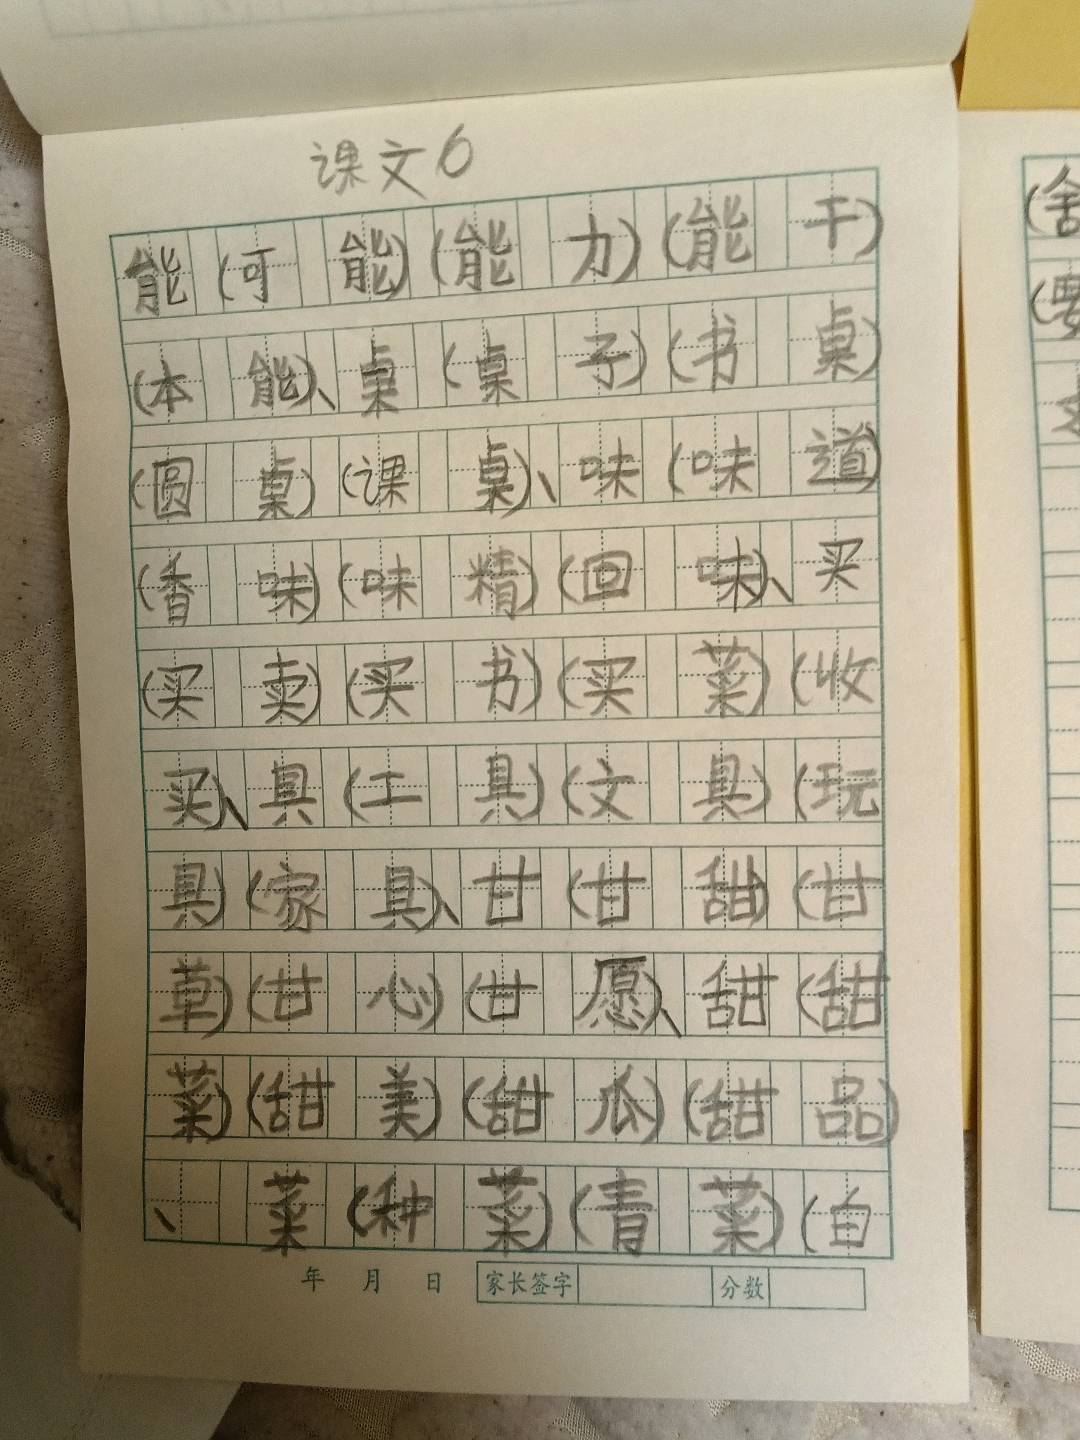 课文6
能(可能)(能力)(能干)
(本能)、桌(桌子)(书桌)
(圆桌)(课桌)、味(味道)
(香味)(味精)(回味)、买
(买卖)(买书)(买菜)(收
买)、具(工具)(文具)(玩
具)(家具)、甘(甘甜)(甘
草)(甘心)(甘愿)、甜(甜
菜)(甜美)(甜瓜)(甜品)
、菜(种菜)(青菜)(白
年 月 日 家长签字 分数
(舍
(要